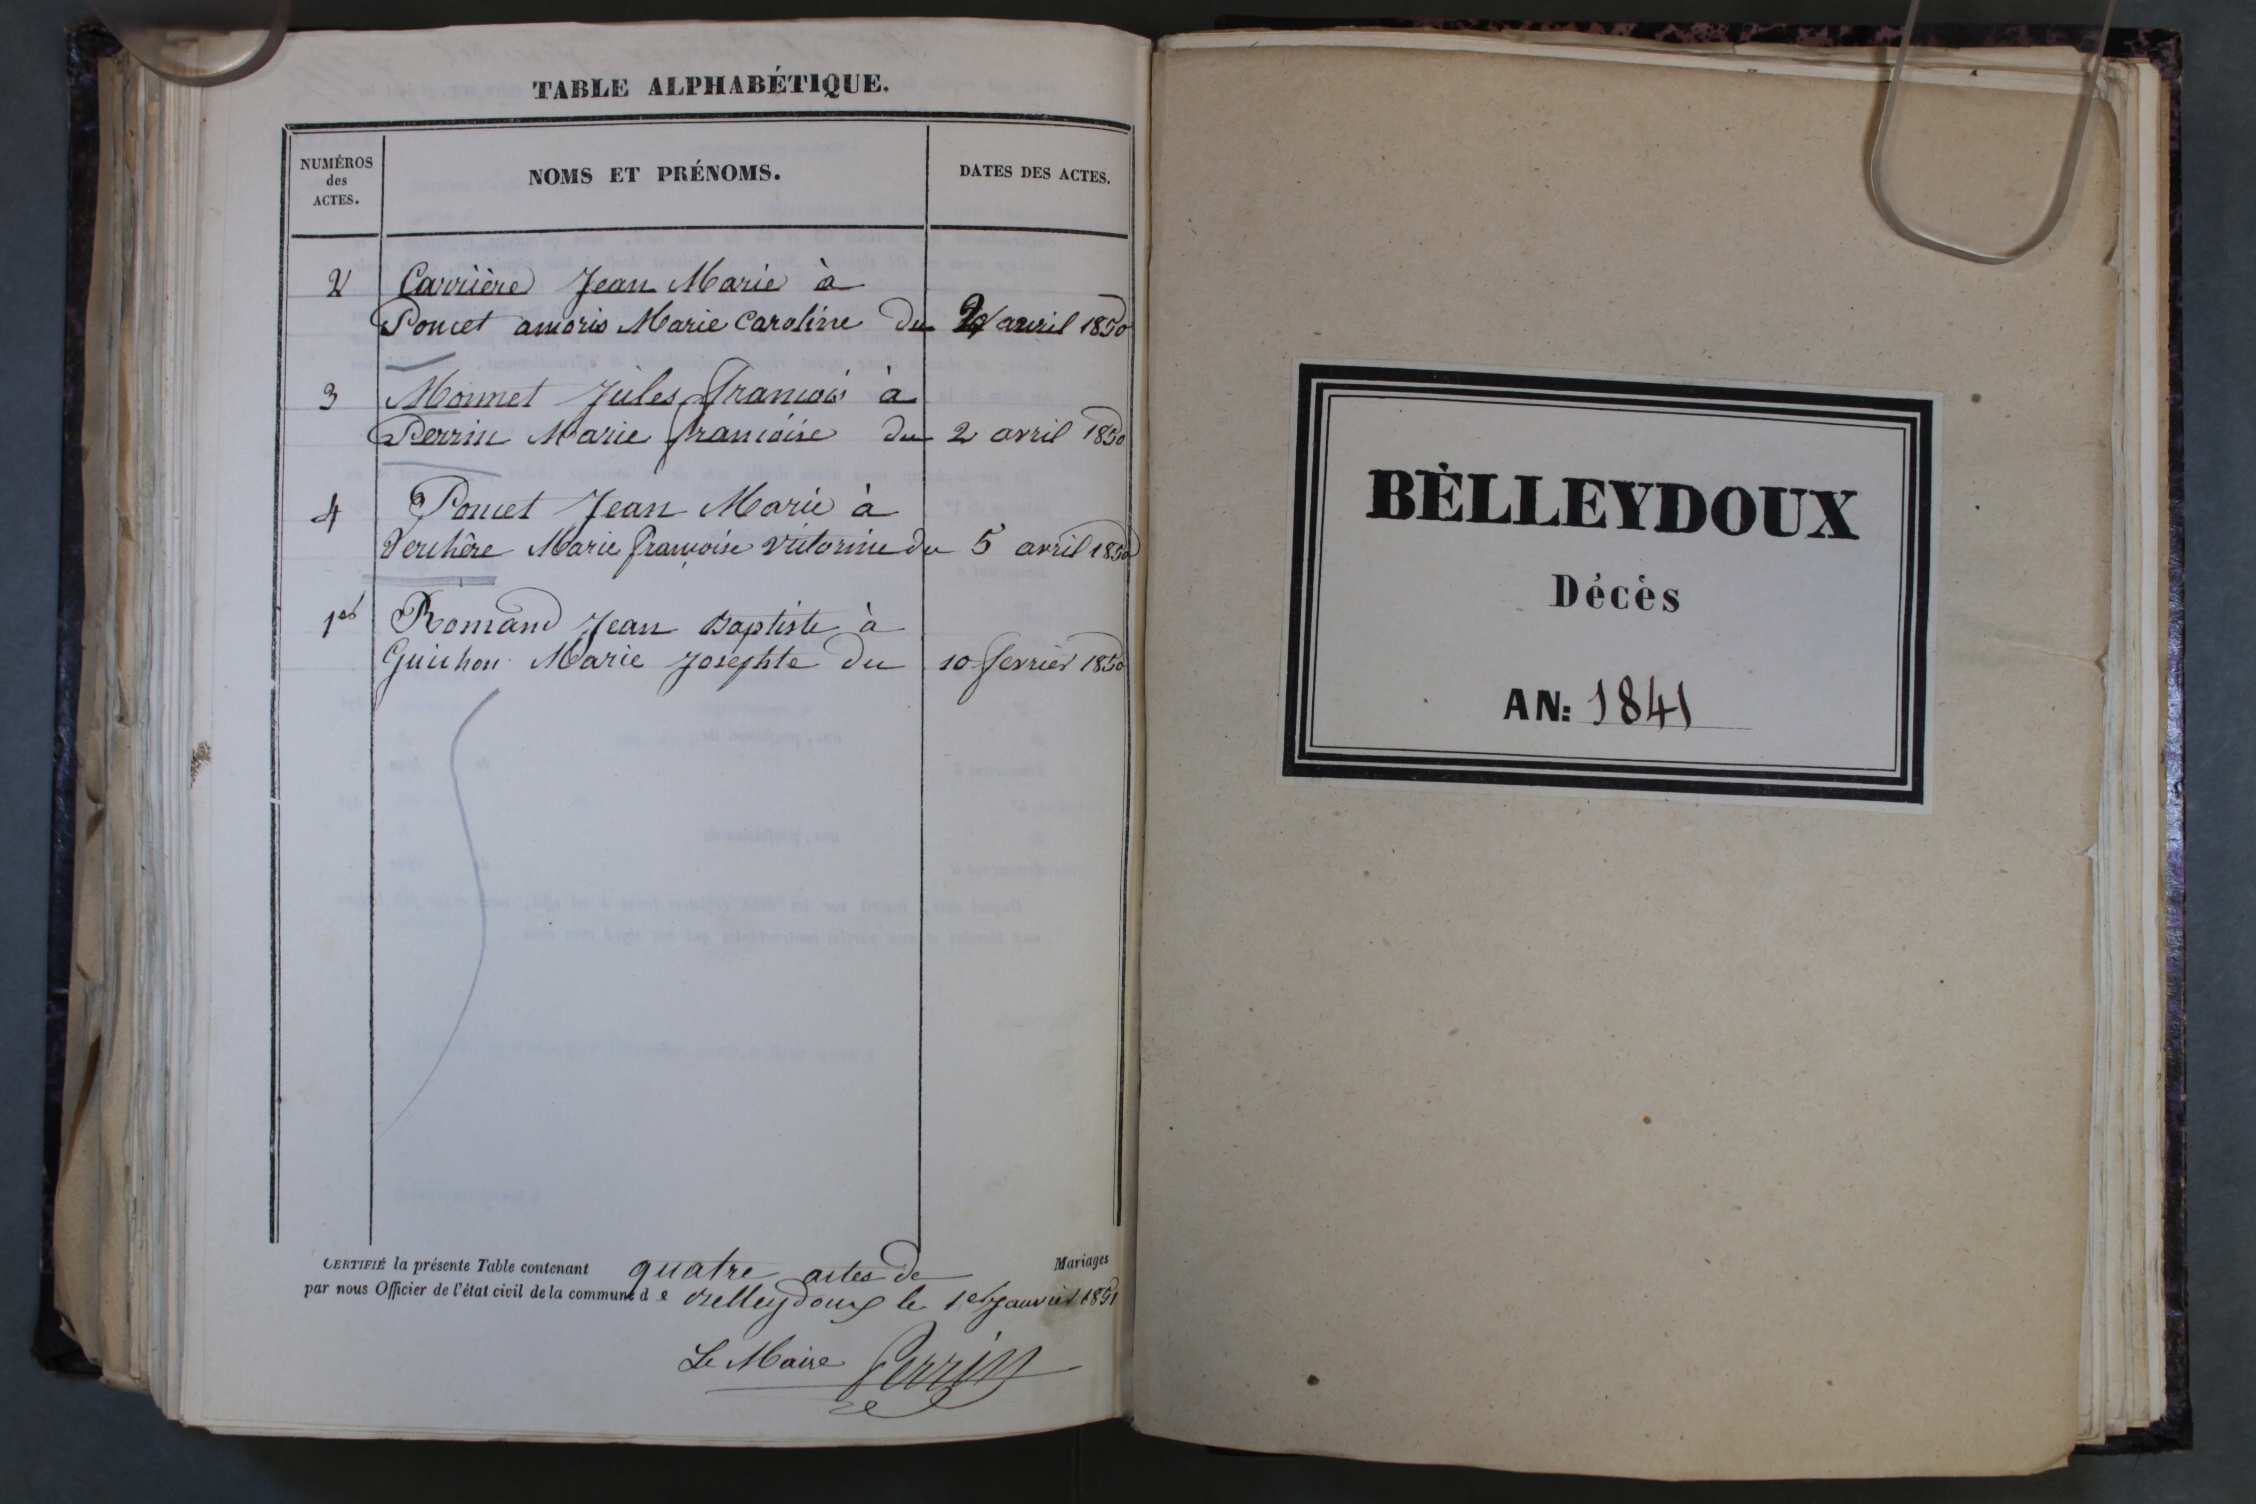 TABLE ALPHABÉTIQUE.
NUMÉROS
des
ACTES.
NOMS ET PRÉNOMS.
DATES DES ACTES.
2 Carrière Jean Marie à
Poncet amoris Marie Caroline du avril 1850
3 Monnet Jules francois à
Perrin Marie francoise du 2 avril 1850
4 Poncet Jean Marie à
Verchère Marie françoise victorine du 5 avril 1850
1er Romand Jean Baptiste à
Guichon Marie Josephte du 10 fevrier 1850
CERTIFIÉ la présente Table contenant quatre actes de Mariages
par nous Officier de l'état civil de la commune de Belleydoux le 1er janvier 1851
Le Maire Perrin
BÈLLEYDOUX
Décès
AN: 1841